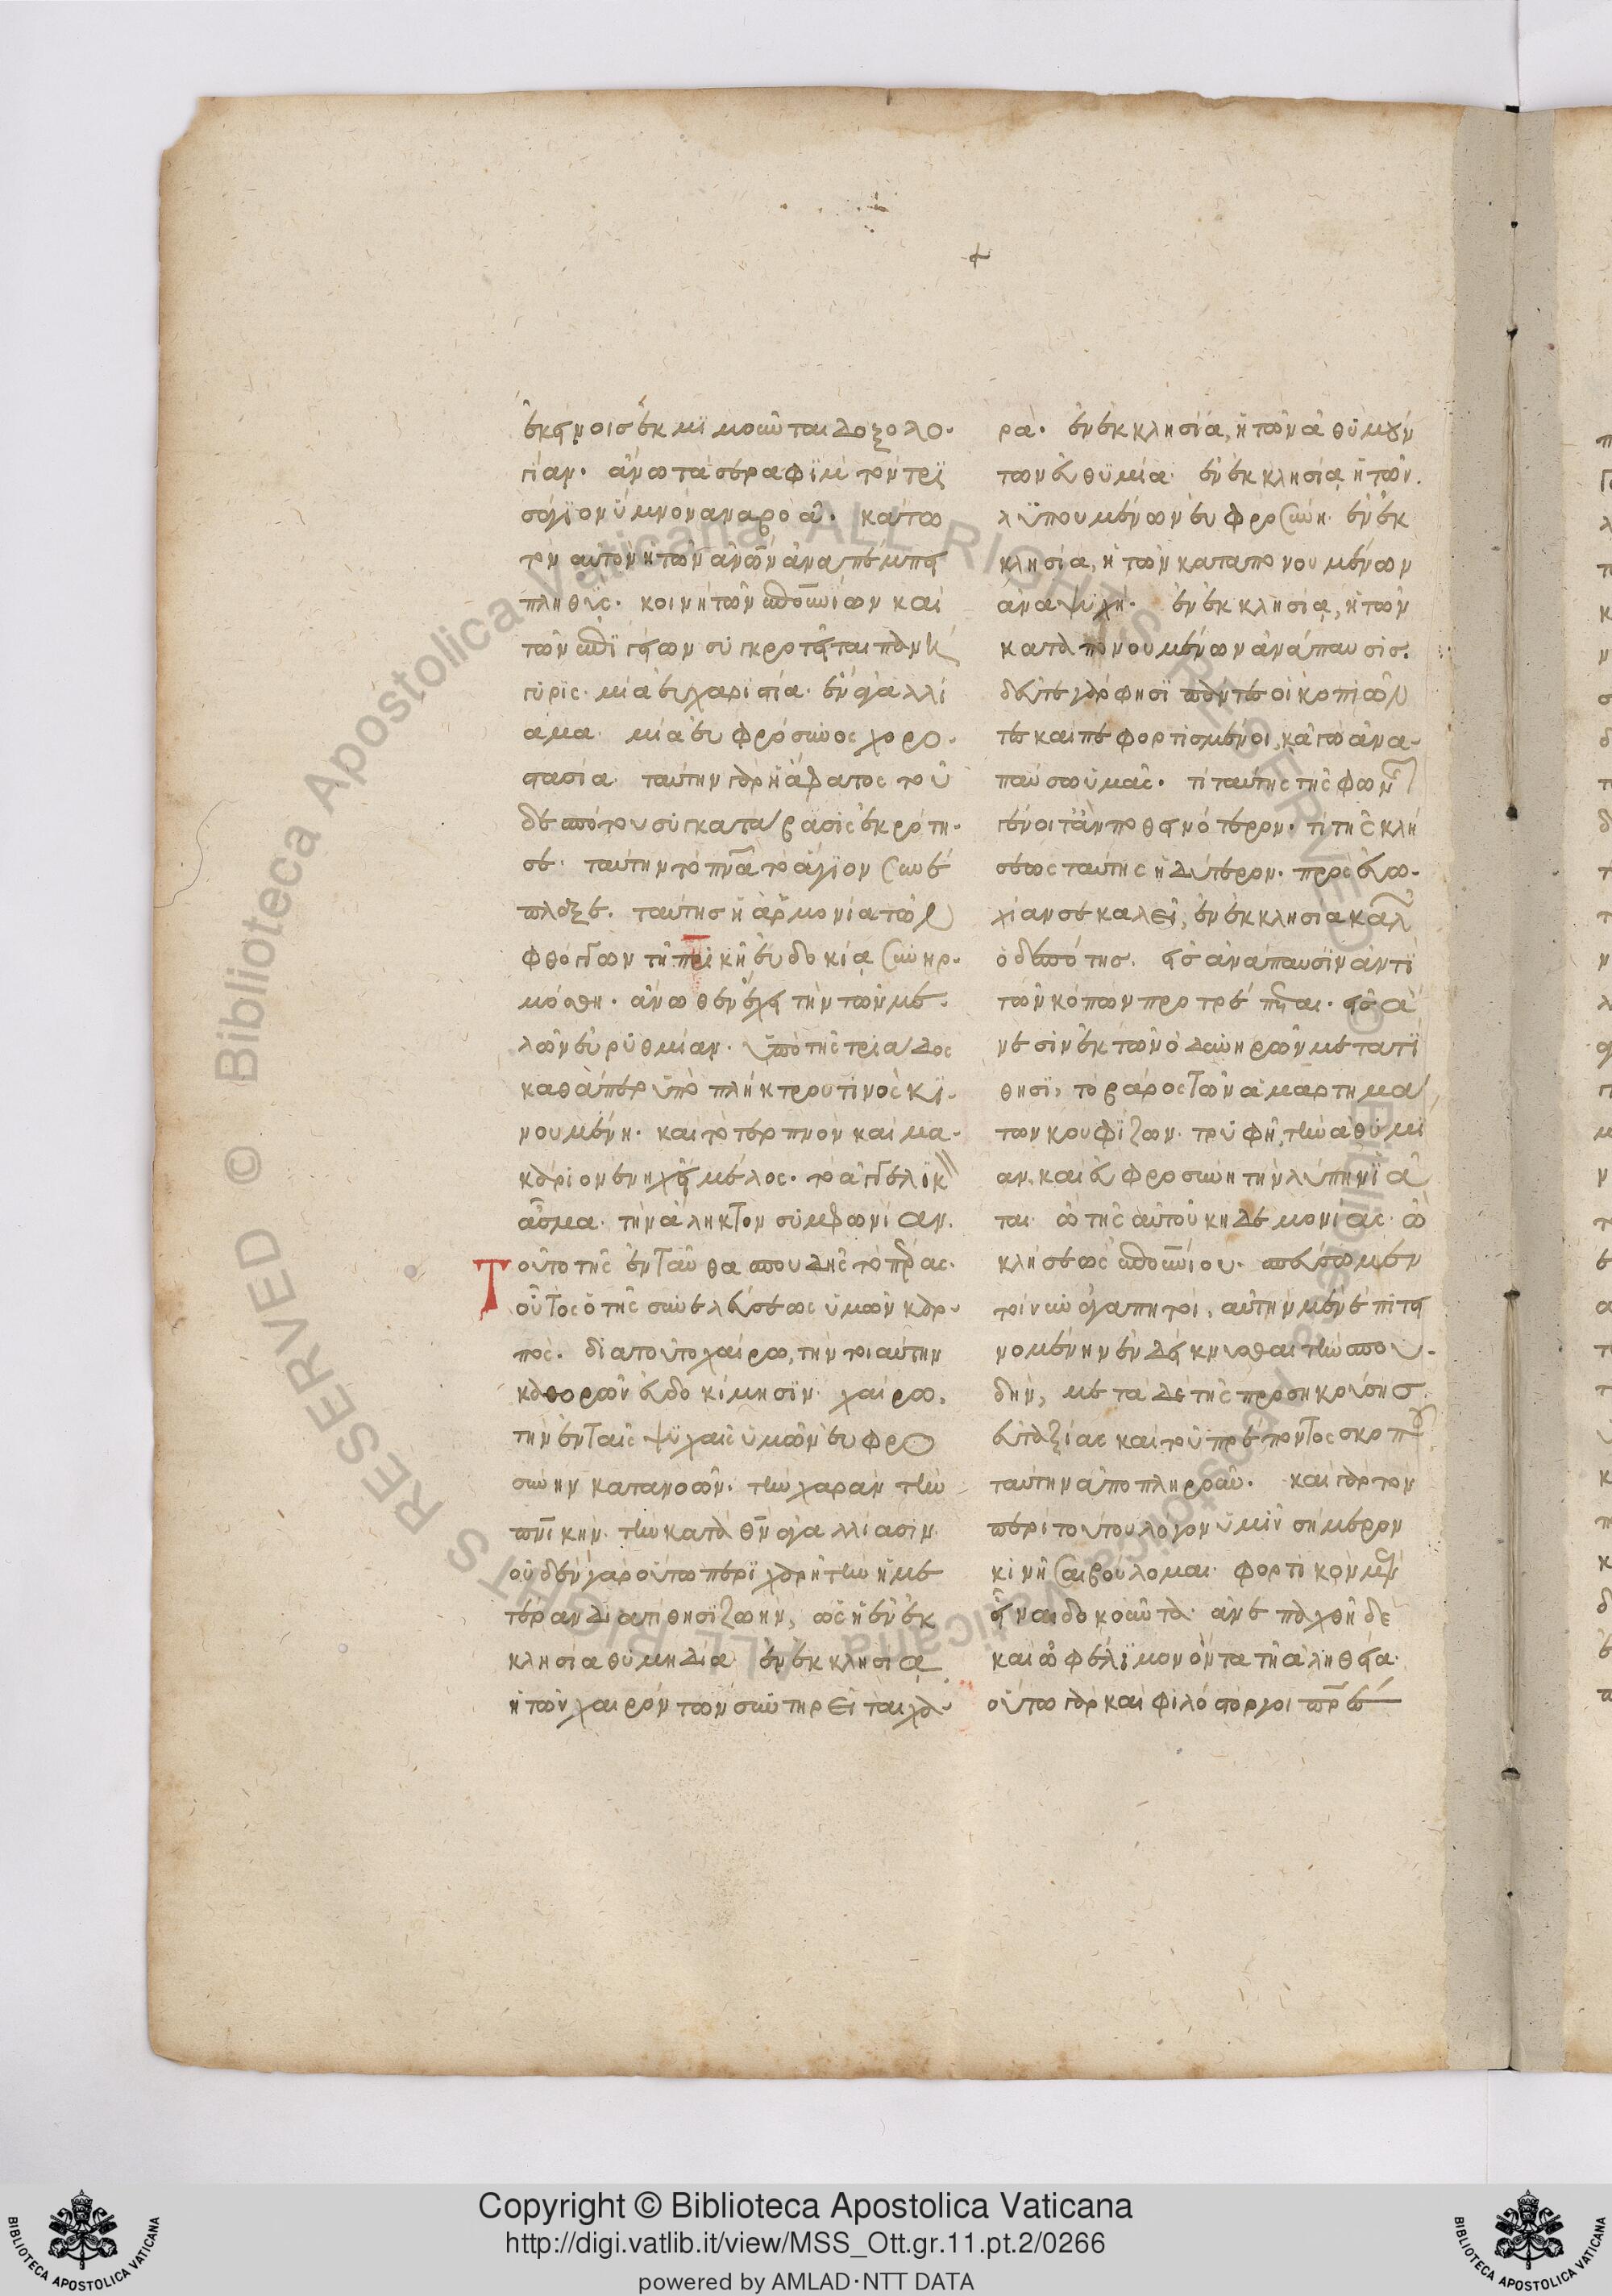 ἐκείνοις ἐκμιμοῦνται δοξολο-
γίαν. ἄνω τὰ σεραφὶμ τὸν τρι
σάγιον ὕμνον ἀναβοᾶ. κάτω
τὸν αὐτὸν ἡ τῶν ἀνων ἀναπέμπει
πληθύς. κοινὴ τῶν ἐπουνίων καὶ
τῶν ἐπιγείων συγκροτεῖται πανή
γυρις. μία εὐχαριστία. ἓν ἀγαλλί
αμα. μία εὐφρόσυνος χορο-
στασία. ταύτην γὰρ ἡ ἄφατος τοῦ
δεσπότου συγκατάβασις ἐκρότη-
σε. ταύτην τὸ πνα τὸ ἅγιον συνέ
πλεξε. ταύτης ἡ ἁρμονία τῶν
φθόγγων τῇ πρικῇ εὐδοκία συνηρ-
μόσθη. ἄνωθεν ἔχει τὴν τῶν με-
λῶν εὐρυθμίαν. ὑπὸ τῆς τριάδος
καθάπερ ὑπὸ πλήκτρου τινὸς κι-
νουμένη. καὶ τὸ τερπνὸν καὶ μα-
κάριον ἐνηχεῖ μέλος. τὸ ἀγγελικὸν
ἆσμα. τὴν ἄληκτον συμφωνίαν.
Τοῦτο τῆς ἐνταῦθα σπουδῆς τὸ πέρας.
οὗτος ὁ τῆς συνελεύσεως ὑμῶν καρ-
πός. διατοῦτο χαίρω, τὴν τοιαύτην
καθορῶν εὐδοκίμησιν. χαίρω,
τὴν ἐν ταῖς ψυχαῖς ὑμῶν εὐφρο
σύνην κατανοῶν. τὴν χαρὰν τὴν
πνικήν. τὴν κατὰ θν ἀγαλλίασιν.
οὐδὲν γὰρ οὕτω περιχαρῆ τὴν ἡμε
τέραν διατίθησι ζωήν, ὡς ἡ ἐν ἐκ
κλησία θυμηδία. ἐν ἐκκλησία
ἡ τῶν χαιρόντων συντηρεῖται χα-
ρά. ἐν ἐκκλησία, ἡ τῶν ἀθυμούν
των εὐθυμία. ἐν ἐκκλησία ἡ τῶν
λυπουμένων εὐφροσύνη. ἐν ἐκ
κλησία, ἡ τῶν καταπονουμένων
ἀναψυχή. ἐν ἐκκλησία, ἡ τῶν
καταπονουμένων ἀνάπαυσις.
δεῦτε γάρ φησι πάντες οἱ κοπιῶν
τες καὶ πεφορτισμένοι, κἀγὼ ἀνα-
παύσω ὑμᾶς. τί ταύτης τῆς φωνῆς
γένοιτ ἂν ποθεινότερον. τί τῆς κλή
σεως ταύτης ἡδύτερον. πρὸς εὐω-
χίαν σε καλεῖ, ἐν ἐκκλησία καλῶν
ὁ δεσπότης. εἰς ἀνάπαυσιν ἀντὶ
τῶν κόπων προτρέπεται. εἰς ἄ
νεσιν ἐκ τῶν ὀδυνηρῶν μετατί
θησι, τὸ βάρος τῶν ἁμαρτημά
των κουφίζων. τρυφῆ, τὴν ἀθυμί
αν, καὶ εὐφροσύνη τὴν λύπην ἰᾶ
ται. ὢ τῆς αὐτοῦ κηδεμονίας. ὢ
κλήσεως ἐπουνίου. σπεύσωμεν
τοίνυν ἀγαπητοί, αὐτὴν μὲν ἐπιτει
νομένην ἐνδείκνυσθαι τὴν σπου-
δήν, μετὰ δὲ τῆς προσηκούσης
εὐταξίας καὶ τοῦ πρέποντος σκοποῦ
ταύτην ἀποπληροῦν. καὶ γὰρ τὸν
περὶ τούτου λόγον ὑμῖν σήμερον
κινῆσαι βούλομαι. φορτικὸν μὲν
εἶναι δοκοῦντα. ἀνεπαχθῆ δὲ
καὶ ὠφέλιμον ὄντα τῆ ἀληθεία.
οὕτω γὰρ καὶ φιλόστοργοι πρες